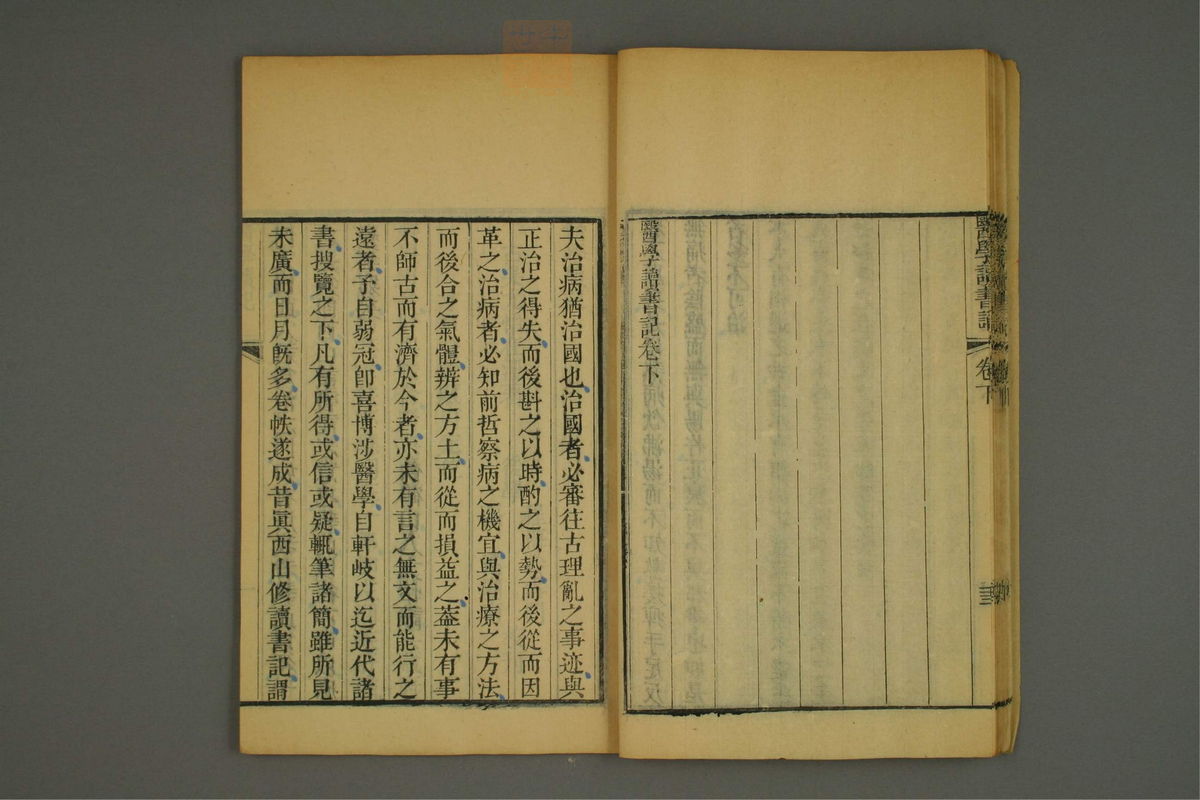 醫學讀書記
卷下
三
醫學讀書記卷下
夫治病猶治國也治國者必審往古理亂之事迹與
正治之得失而後斟之以時酌之以勢而後從而因
革之治病者必知前哲察病之機宜與治療之方法
而後合之氣體辨之方土而從而損益之葢未有事
不師古而有濟於今者亦未有言之無文而能行之
遠者予自弱冠卽喜博涉醫學自軒岐以迄近代諸
書搜覽之下凡有所得或信或疑輒筆諸簡雖所見
未廣而日月旣多卷帙遂成昔眞西山修讀書記謂